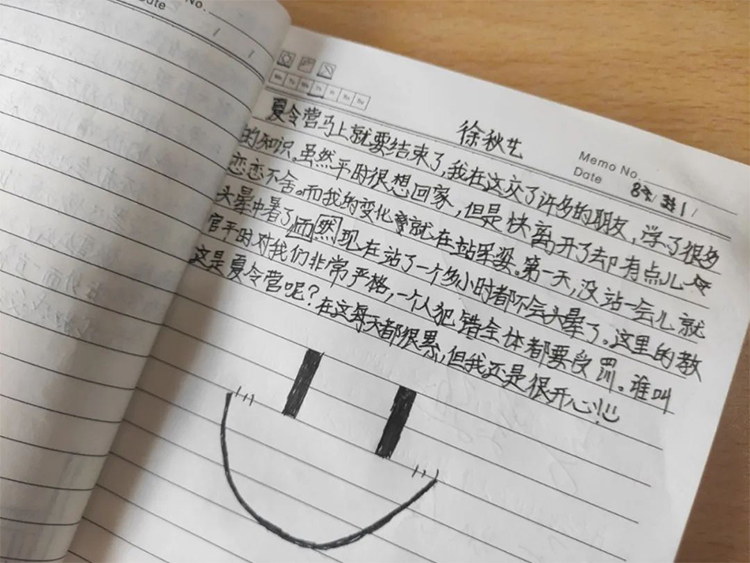 No.
Date / /
徐秋艺
Memo No.
Date 8月 / /
夏令营马上就要结束了,我在这交了许多的朋友,学了很多
的知识,虽然平时很想回家,但是快离开了却有点儿
恋恋不舍。而我的变化就在站军姿。第一天,没站一会儿就
头晕中暑了,而然现在站了一个多小时都不会头晕了。这里的教
官平时对我们非常严格,一个人犯错全体都要受罚。谁叫
这是夏令营呢?在这每天都很累,但我还是很开心!